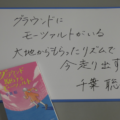 グラウンドに
モーツァルトがいる
大地からもらったリズムで
今走り出す
千葉 聡